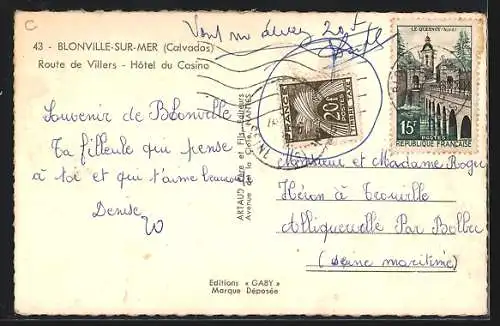 C
Vous me devez 20f
43 - BLONVILLE-SUR-MER (Calvados)
Route de Villers - Hôtel du Casino
LE QUESNOY (Nord)
15F
POSTES
RÉPUBLIQUE FRANÇAISE
FRANCE
20F
POSTES
TIMBRE TAXE
Souvenir de Blonville
Ta filleule qui pense
à toi et qui t'aime beaucoup
Denise
ARTAUD Père et Fils, Editeurs
Avenue de la Gare, NANTES
Monsieur et Madame Roger
Héron à Trouville
Alliquerville Par Bolbec
(Seine maritime)
Editions « GABY »
Marque Déposée